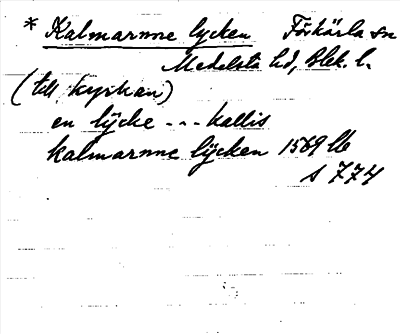 * Kalmarnne lycken Förkärla sn
Medelsta hd, Blek. l.
(till kyrkan)
en lÿcke --- kallis
kalmarnne lÿcken 1569 lb
s 774